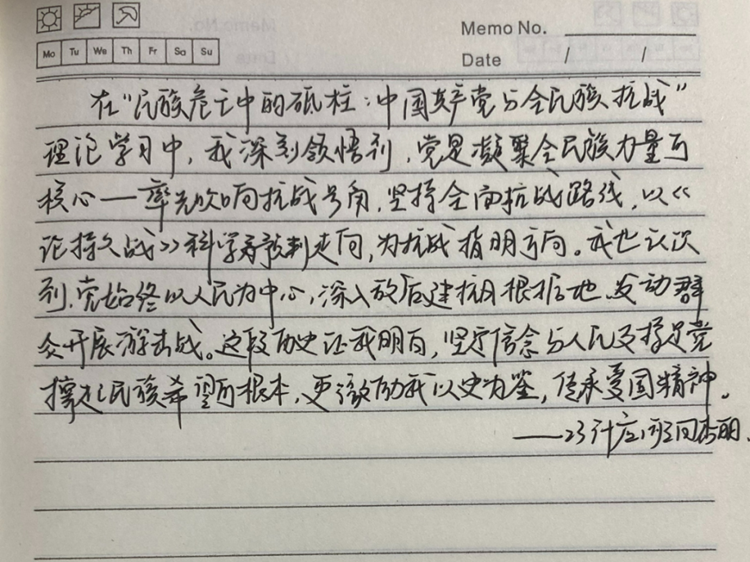 Memo No.
Mo Tu We Th Fr Sa Su
Date / /
在“民族危亡中的砥柱：中国共产党与全民族抗战”
理论学习中，我深刻领悟到，党是凝聚全民族力量的
核心——率先吹响抗战号角，坚持全面抗战路线，以《
论持久战》科学导敌判走向，为抗战指明方向。我也认识
到，党始终以人民为中心，深入敌后建抗日根据地，发动群
众开展游击战。这段历史让我明白，坚定信念与人民支撑是党
撑起民族希望的根本，更激励我以史为鉴，传承爱国精神。
——23计应班